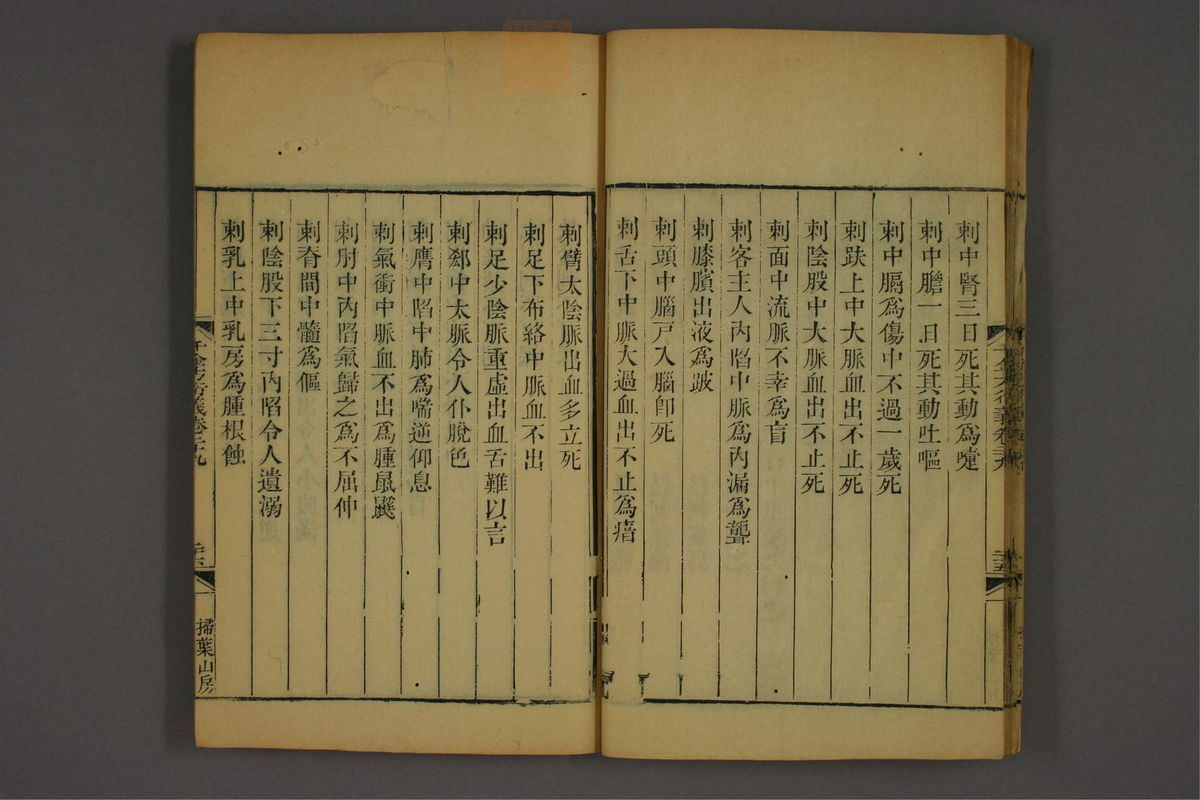 刺中腎三日死其動爲嚏
刺中膽一日死其動吐嘔
刺中膈爲傷中不過一歲死
刺趺上中大脈血出不止死
刺陰股中大脈血出不止死
刺面中流脈不幸爲盲
刺客主人內陷中脈爲內漏爲聾
刺膝臏出液爲跛
刺頭中腦戸入腦卽死
刺舌下中脈大過血出不止爲瘖
刺臂太陰脈出血多立死
刺足下布絡中脈血不出
刺足少陰脈重虛出血舌難以言
刺郄中太脈令人仆脫色
刺膺中陷中肺爲喘逆仰息
刺氣衝中脈血不出爲腫鼠鼷
刺肘中內陷氣歸之爲不屈伸
刺脊間中髓爲傴
刺陰股下三寸內陷令人遺溺
刺乳上中乳房爲腫根蝕
千金方衍義卷二十九
二十六
掃葉山房